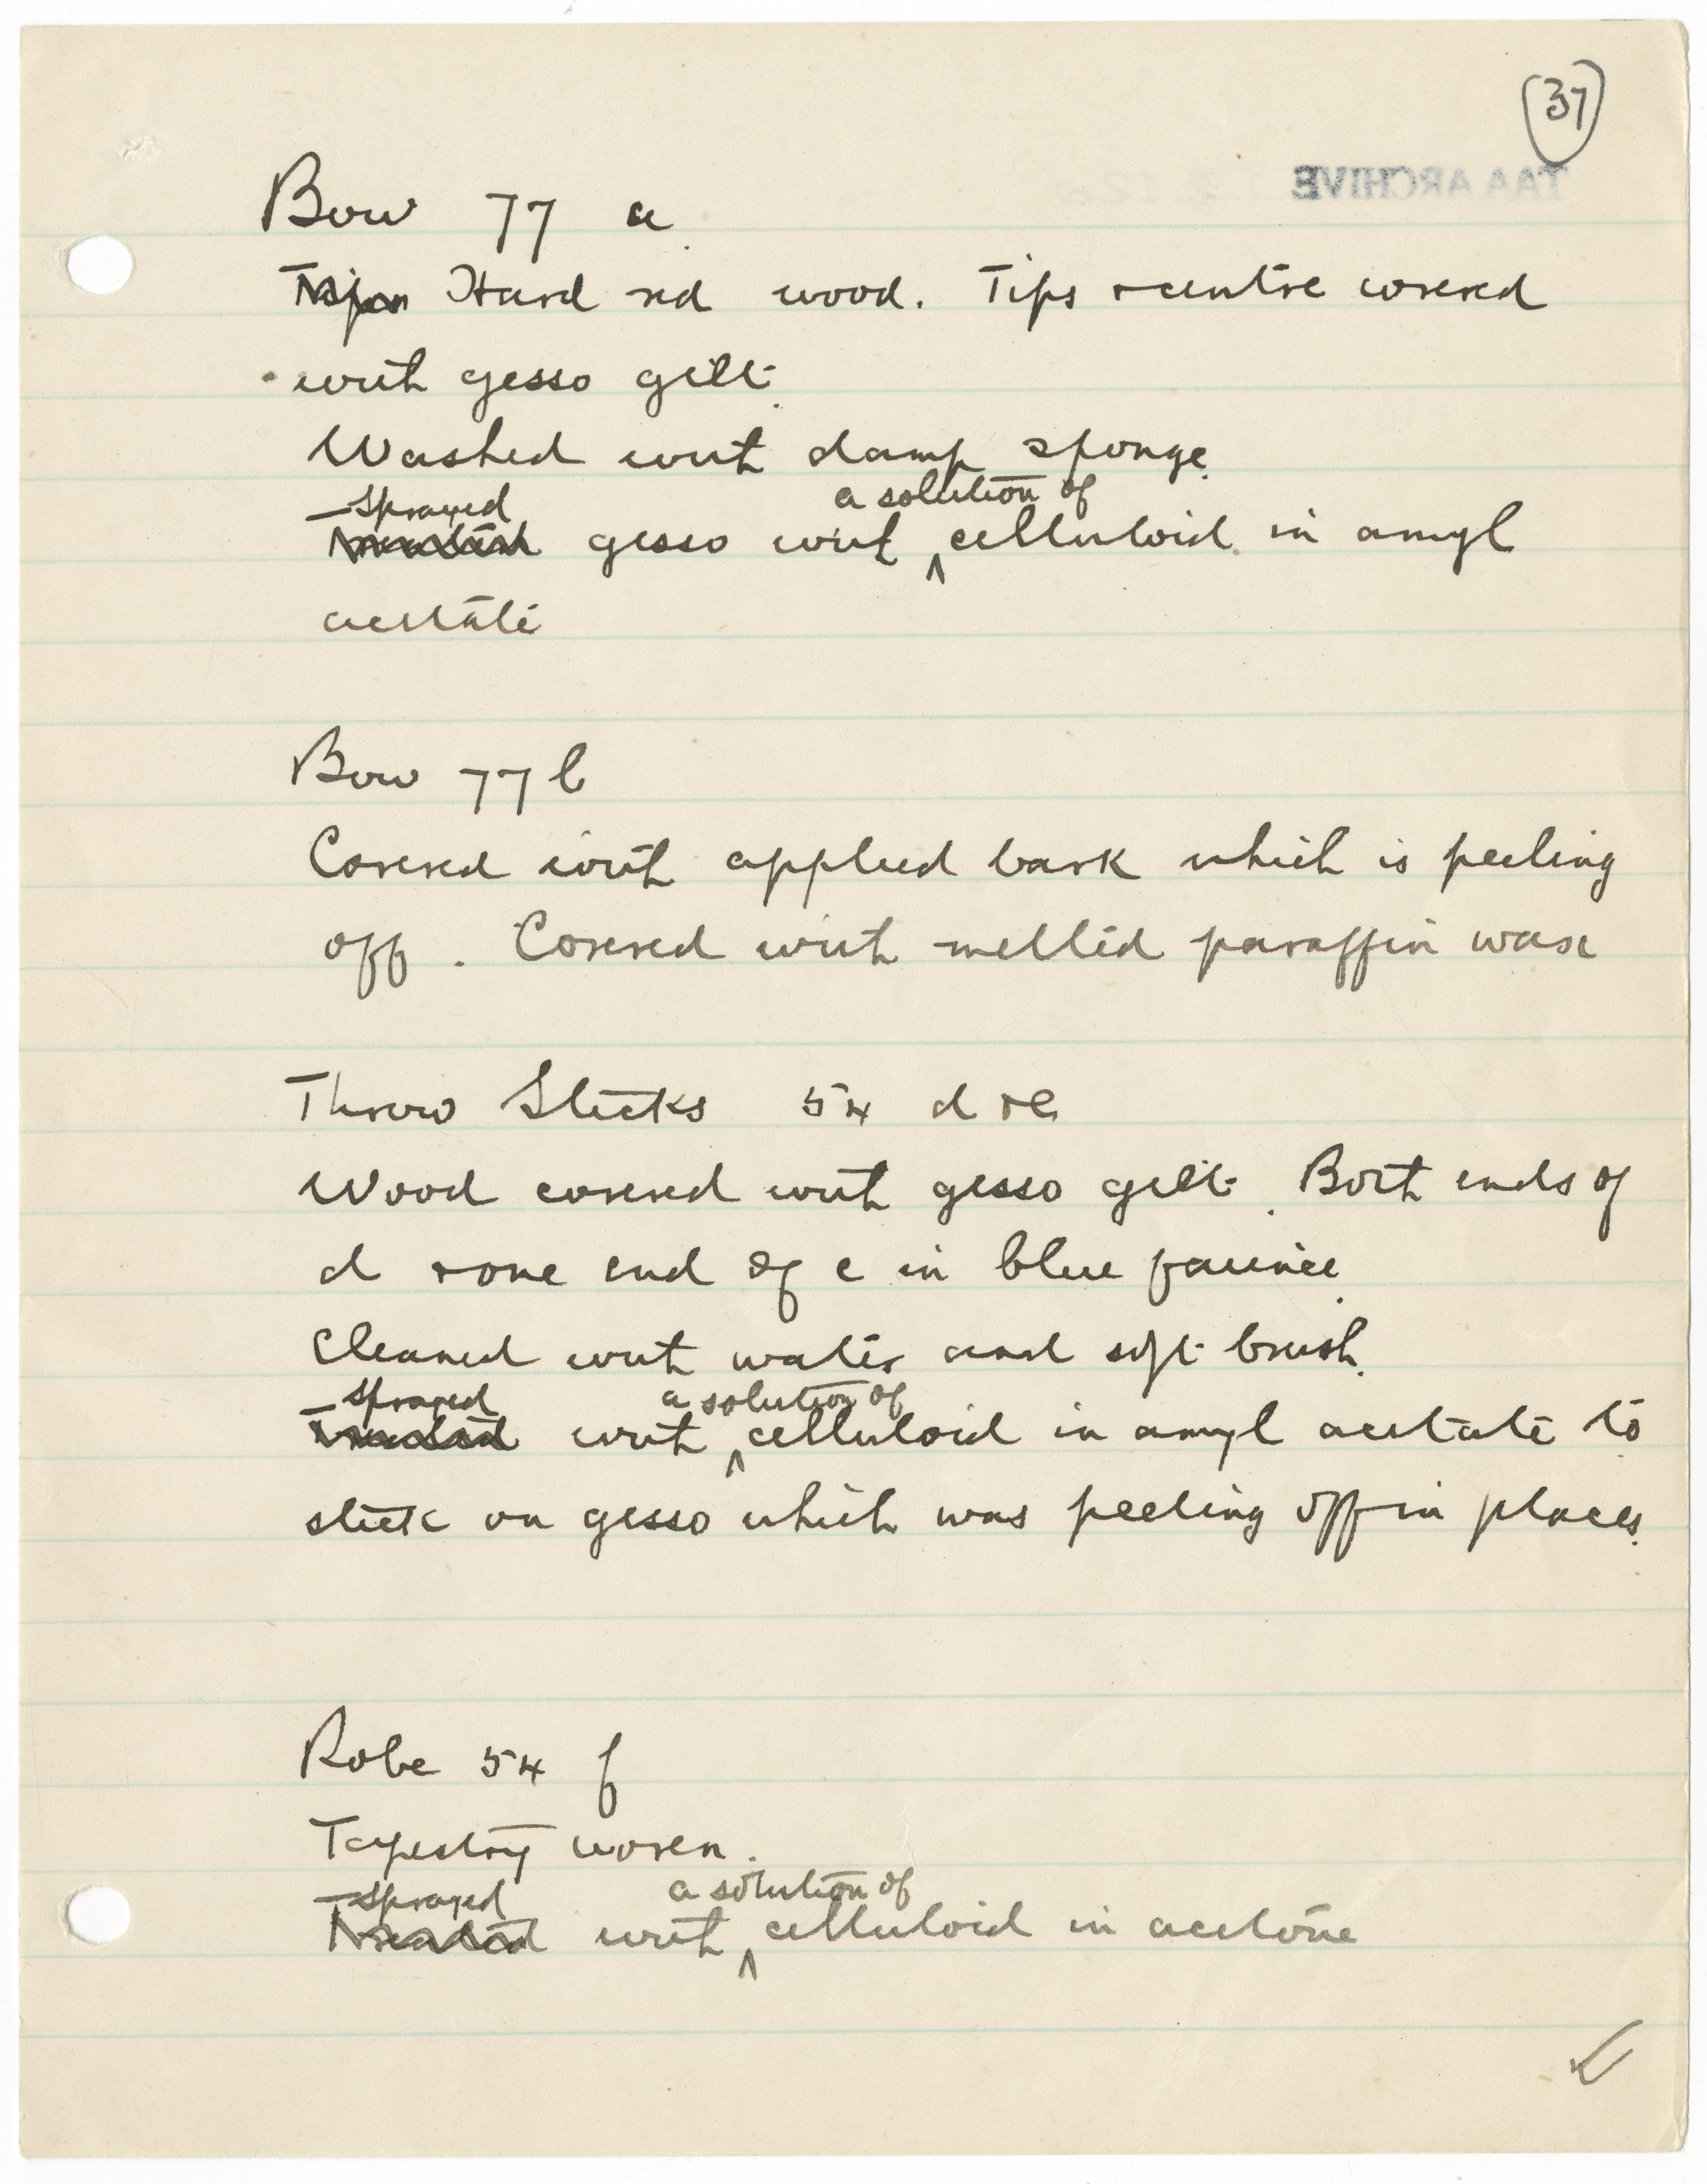 37
TAA ARCHIVE
Bow 77 a
Hard red wood. Tips + centre covered
with gesso gilt.
Washed with damp sponge.
– Sprayed a solution of
Treated gesso with ‸ celluloid in amyl
acetate
Bow 77 b
Covered with applied bark which is peeling
off. Covered with melted paraffin wax
Throw Sticks 54 d + e.
Wood covered with gesso gilt. Both ends of
d + one end of e in blue faience.
Cleaned with water and soft brush.
– Sprayed a solution of
Treated with ‸ celluloid in amyl acetate to
stick on gesso which was peeling off in places.
Robe 54 f
Tapestry woven.
– Sprayed a solution of
Treated with ‸ celluloid in acetone